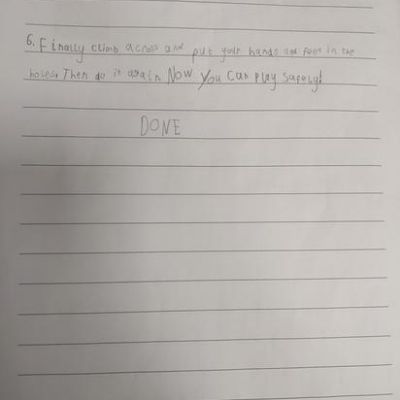 6. Finally climb across and put your hands and feet in the
holes. Then do it again. Now you can play safely!
DONE